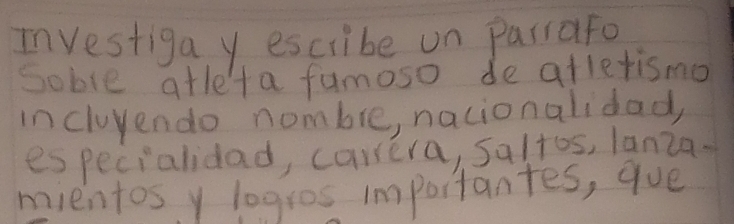 Investiga y escribe un Parrafo
Sobre atleta famoso de atletismo
incluyendo nombre, nacionalidad,
especialidad, carrera, saltos, lanza-
mientos y logros importantes, que